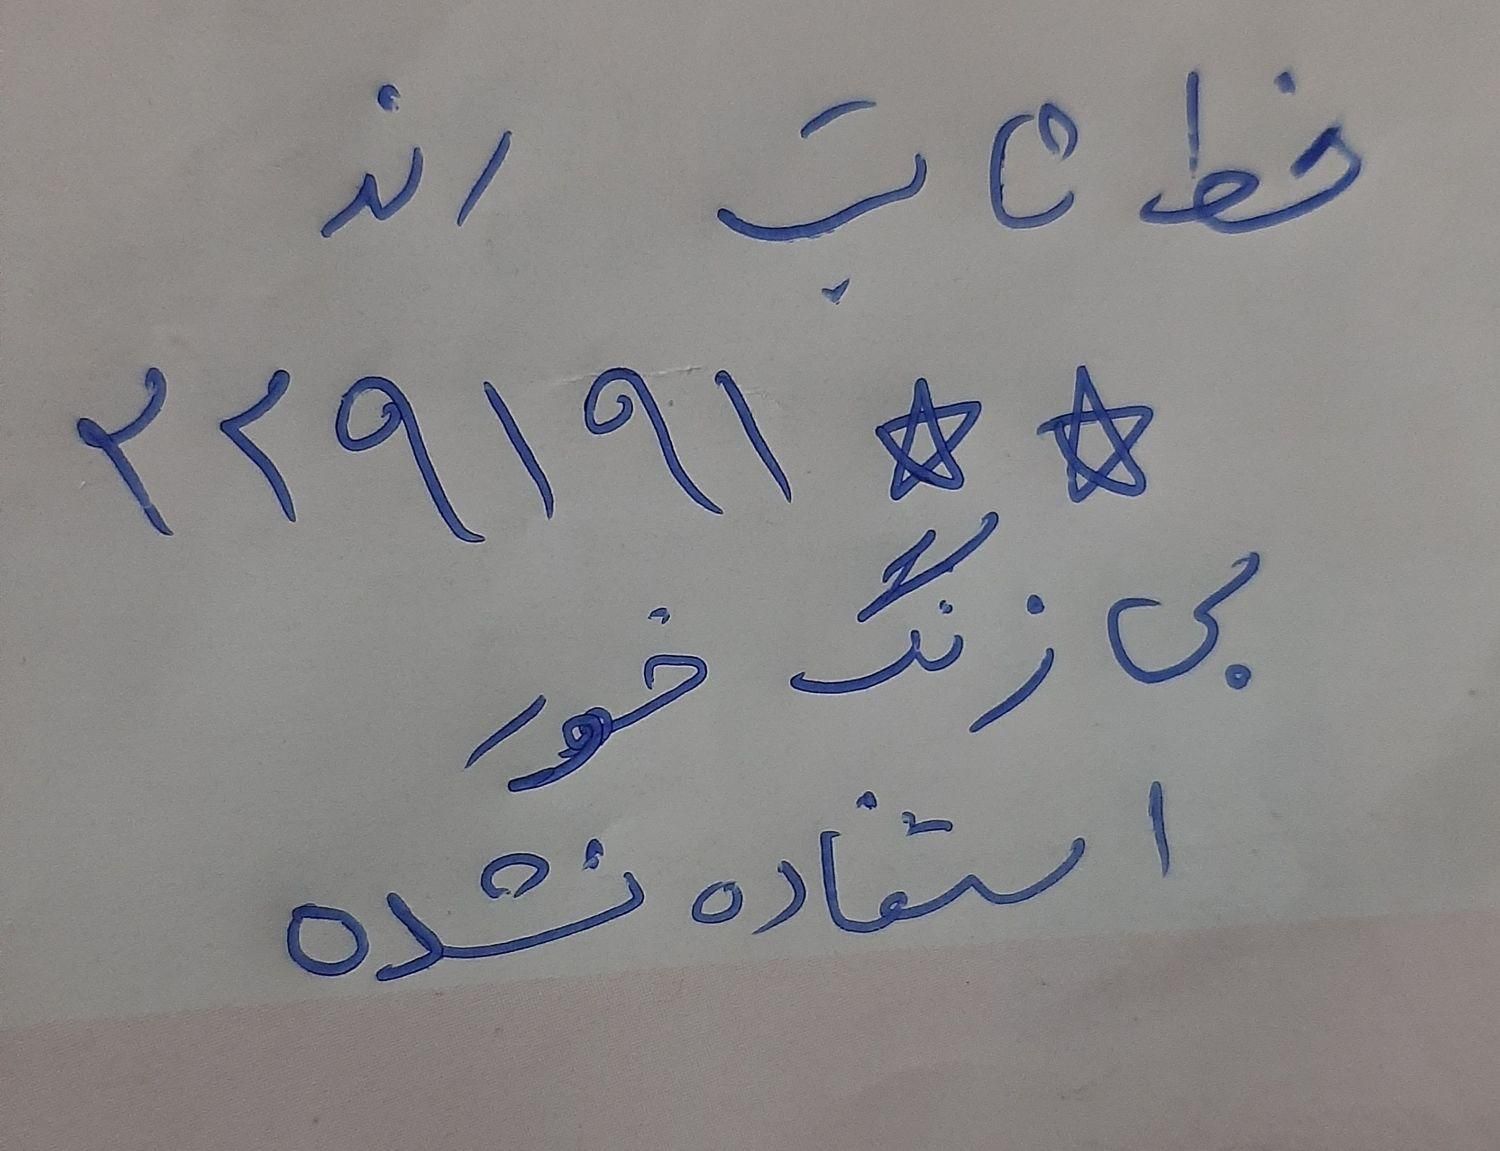 خط ثابت رند
۲۲۹۱۹۱☆☆
بی زنگ خور
استفاده نشده